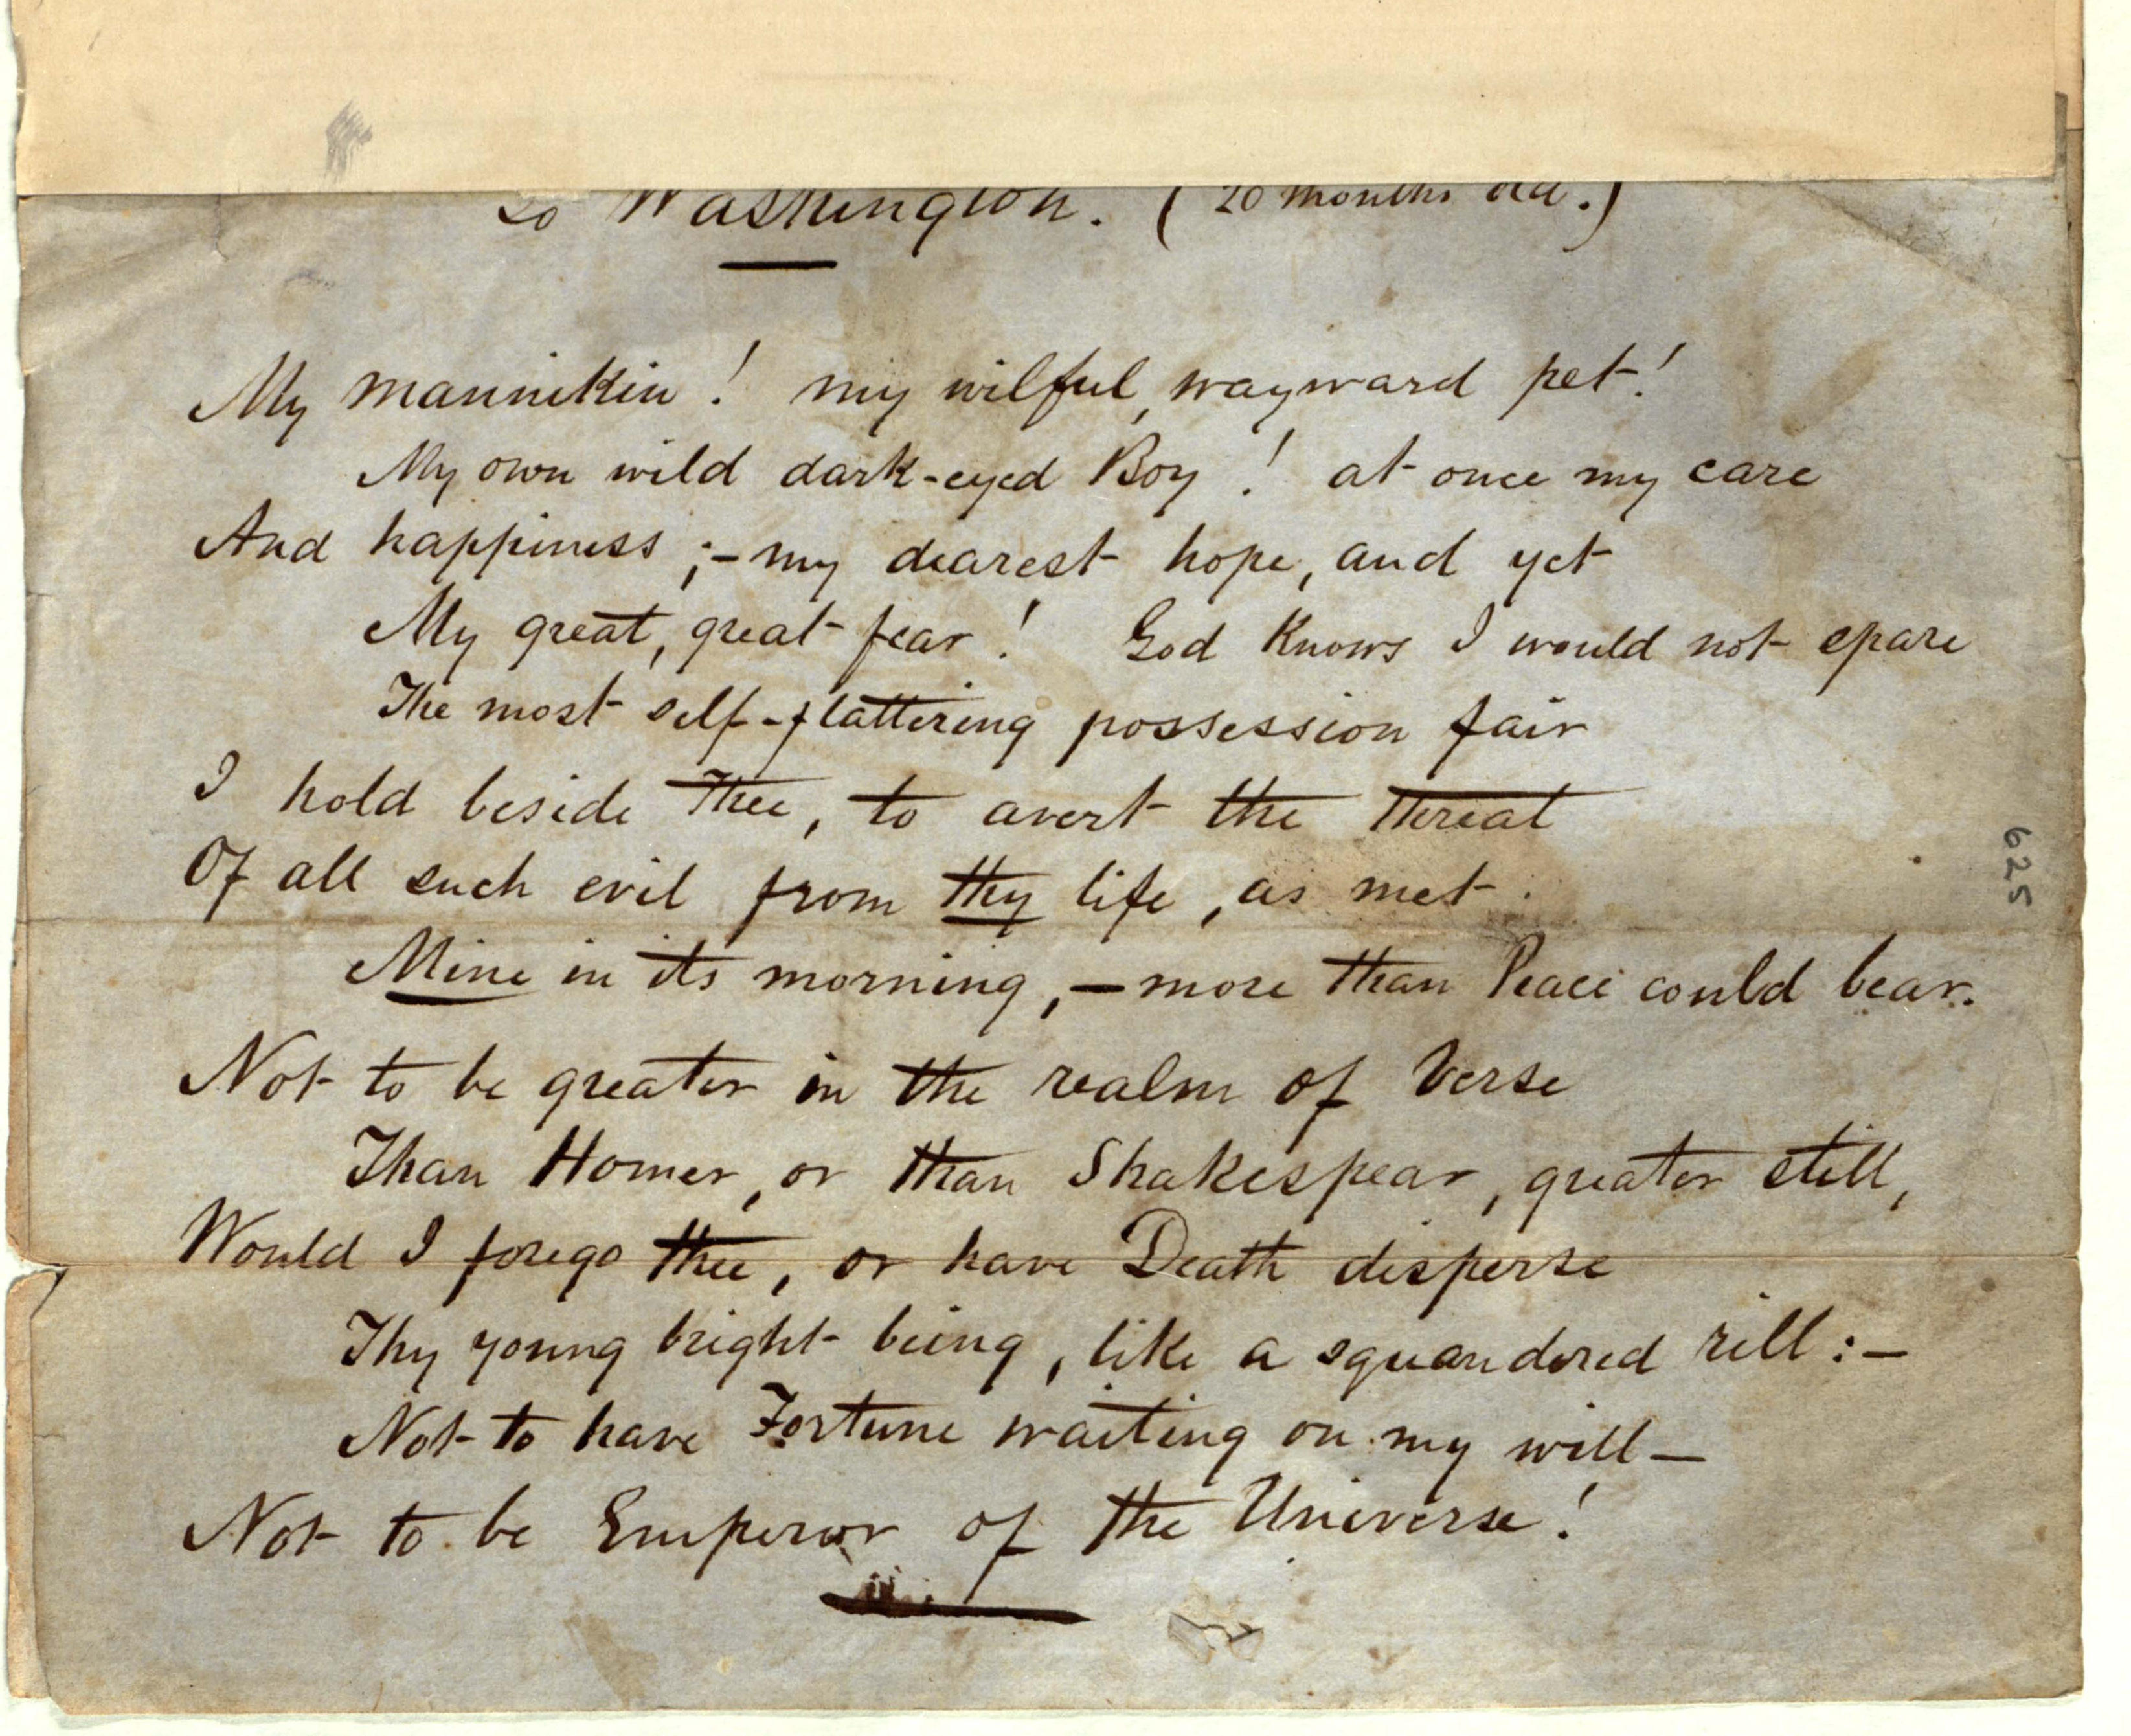 To Washington. (20 months old.)
My mannikin! my wilful, wayward pet!
My own wild dark-eyed Boy! at once my care
And happiness;—my dearest hope, and yet
My great, great fear! God Knows I would not spare
The most self-flattering possession fair
I hold beside Thee, to avert the threat
Of all such evil from thy life, as met
Mine in its morning,—more than Peace could bear.
Not to be greater in the realm of Verse
Than Homer, or than Shakespear, greater still,
Would I forego thee, or have Death disperse
Thy young bright being, like a squandered rill:—
Not to have Fortune waiting on my will—
Not to be Emperor of the Universe!
625